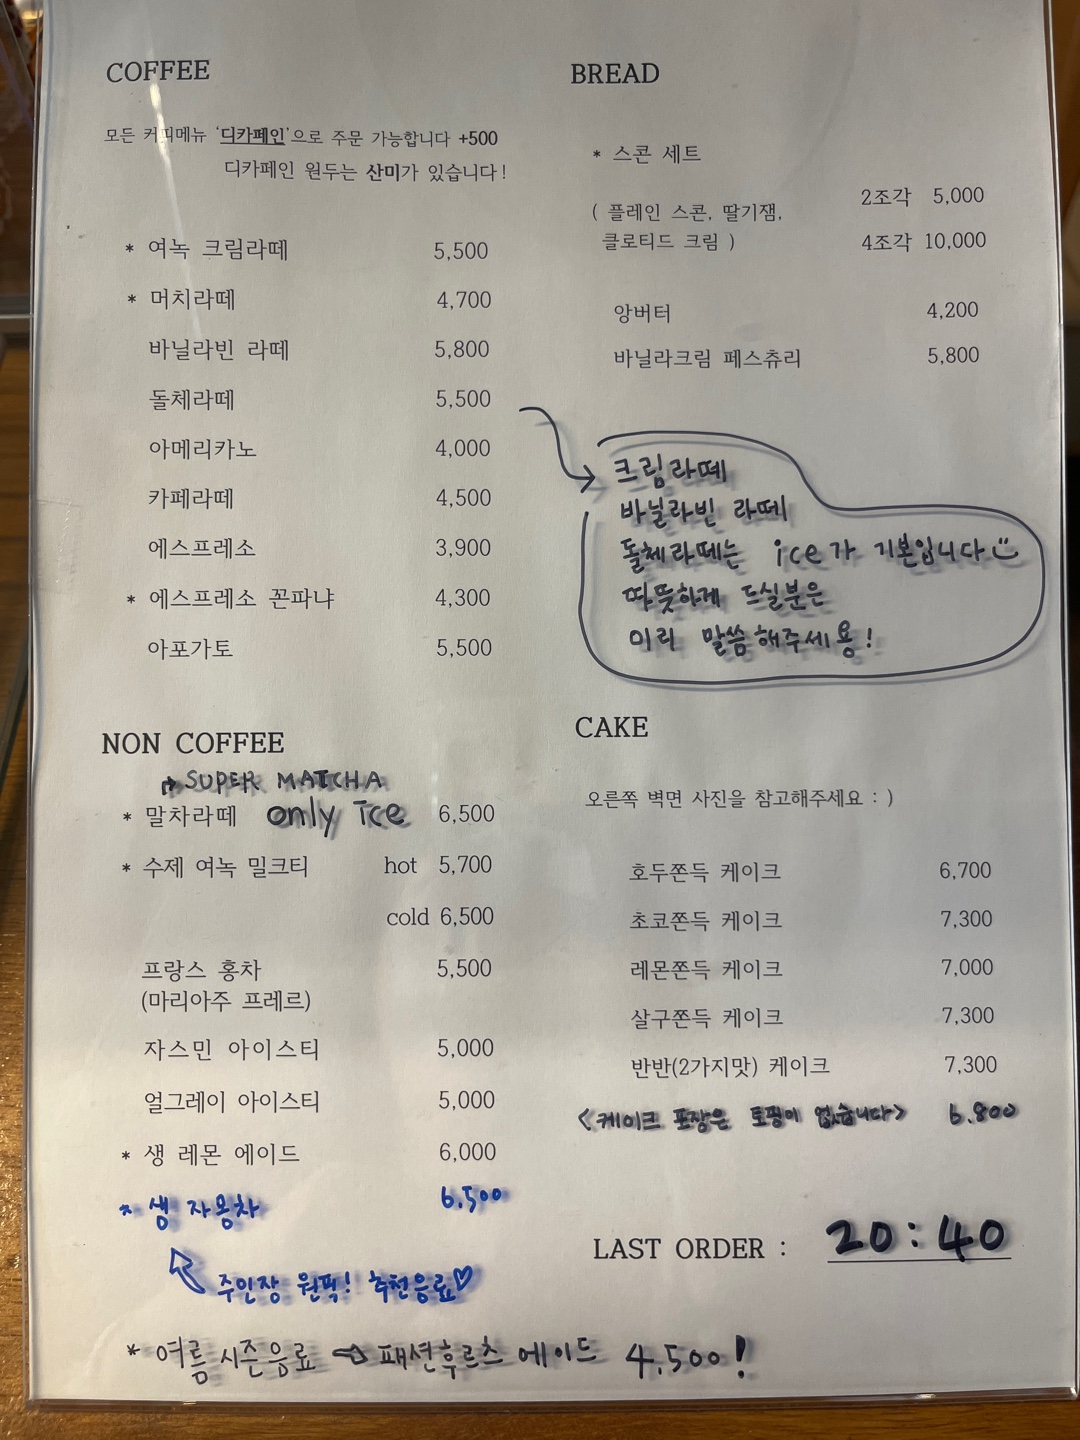 COFFEE
모든 커피메뉴 '디카페인'으로 주문 가능합니다 +500
디카페인 원두는 산미가 있습니다!
* 여녹 크림라떼 5,500
* 머치라떼 4,700
바닐라빈 라떼 5,800
돌체라떼 5,500
아메리카노 4,000
카페라떼 4,500
에스프레소 3,900
* 에스프레소 꼰파냐 4,300
아포가토 5,500
NON COFFEE
SUPER MATCHA
* 말차라떼 only Ice 6,500
* 수제 여녹 밀크티 hot 5,700
cold 6,500
프랑스 홍차 5,500
(마리아주 프레르)
자스민 아이스티 5,000
얼그레이 아이스티 5,000
* 생 레몬 에이드 6,000
* 생 자몽차 6.500
주인장 원픽! 추천음료♡
* 여름 시즌음료 ⇨ 패션후르츠 에이드 4,500!
BREAD
* 스콘 세트
( 플레인 스콘, 딸기잼,
클로티드 크림 )
2조각 5,000
4조각 10,000
앙버터 4,200
바닐라크림 페스츄리 5,800
크림라떼
바닐라빈 라떼
돌체라떼는 ice가 기본입니다
따뜻하게 드실분은
미리 말씀해주세용!
CAKE
오른쪽 벽면 사진을 참고해주세요 : )
호두쫀득 케이크 6,700
초코쫀득 케이크 7,300
레몬쫀득 케이크 7,000
살구쫀득 케이크 7,300
반반(2가지맛) 케이크 7,300
<케이크 포장은 토핑이 없습니다> 6.800
LAST ORDER : 20:40